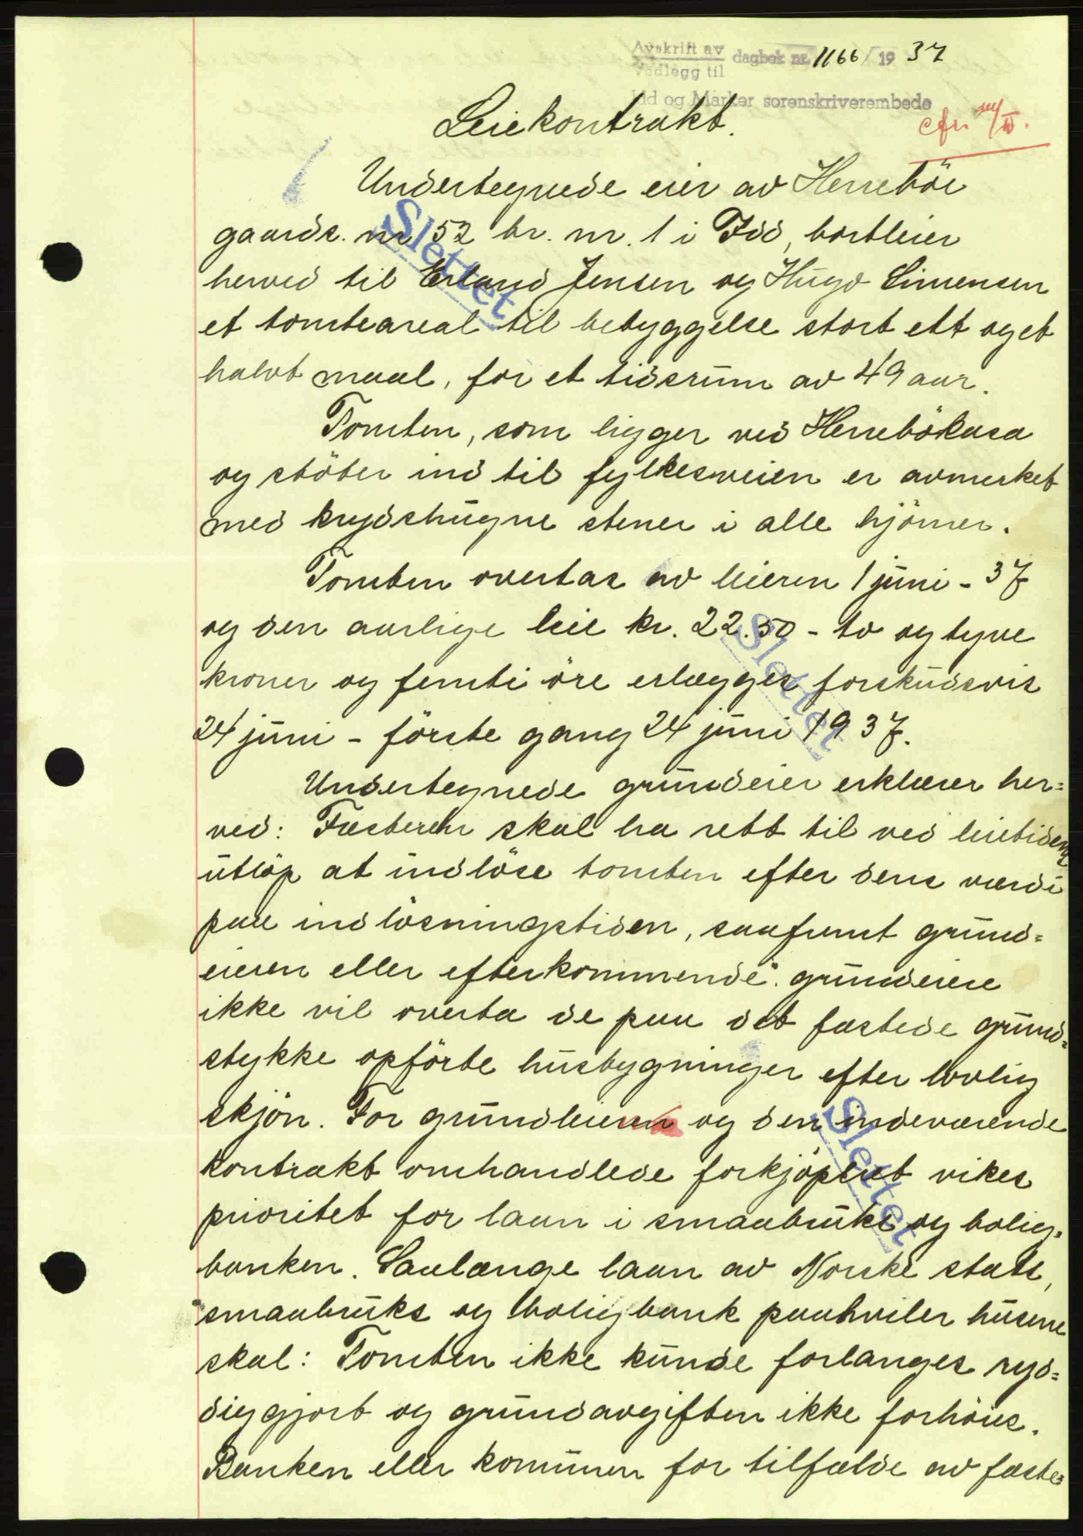 Avskrift av
vedlegg til dagbok nr. 1166/1937
Idd og Marker sorenskriverembede
Leiekontrakt.
cfr.
Undertegnede eier av Herrebör
gaards. nr 52 br. nr. 1 i Idd, bortleier
herved til Erland Jensen og Hugo Simensen
et tomteareal til bebyggelse stort ett og et
halvt maal, for et tidsrum av 49 aar.
Tomten, som ligger ved Herrebökasa
og stöter ind til fylkesveien er avmerket
med krydshugne stener i alle hjörner.
Tomten overtas av leieren 1 juni - 37
og den aarlige leie kr. 22.50 - to og tyve
kroner og femti öre erlægges forskudsvis
24 juni - förste gang 24 juni 1937.
Undertegnede grundeier erklærer her=
ved: Fæsteren skal ha rett til ved leietidens
utlöp at indlöse tomten efter dens værdi
paa indlösningstiden, saafremt grund=
eieren eller efterkommende grundeiere
ikke vil overta de paa det fæstede grund=
stykke opförte husbygninger efter lovlig
skjön. For grundleieren og den indeværende
kontrakt omhandlede forkjöpsret vikes
prioritet for laan i smaabruks og bolig=
banken. Saalænge laan av Norske stats,
smaabruks og boligbank paahviler husene
skal: Tomten ikke kunde forlanges ryd=
diggjort og grundavgiften ikke forhöies.
Banken eller kommunen for tilfælde av fæste=
Slettet
Slettet
Slettet